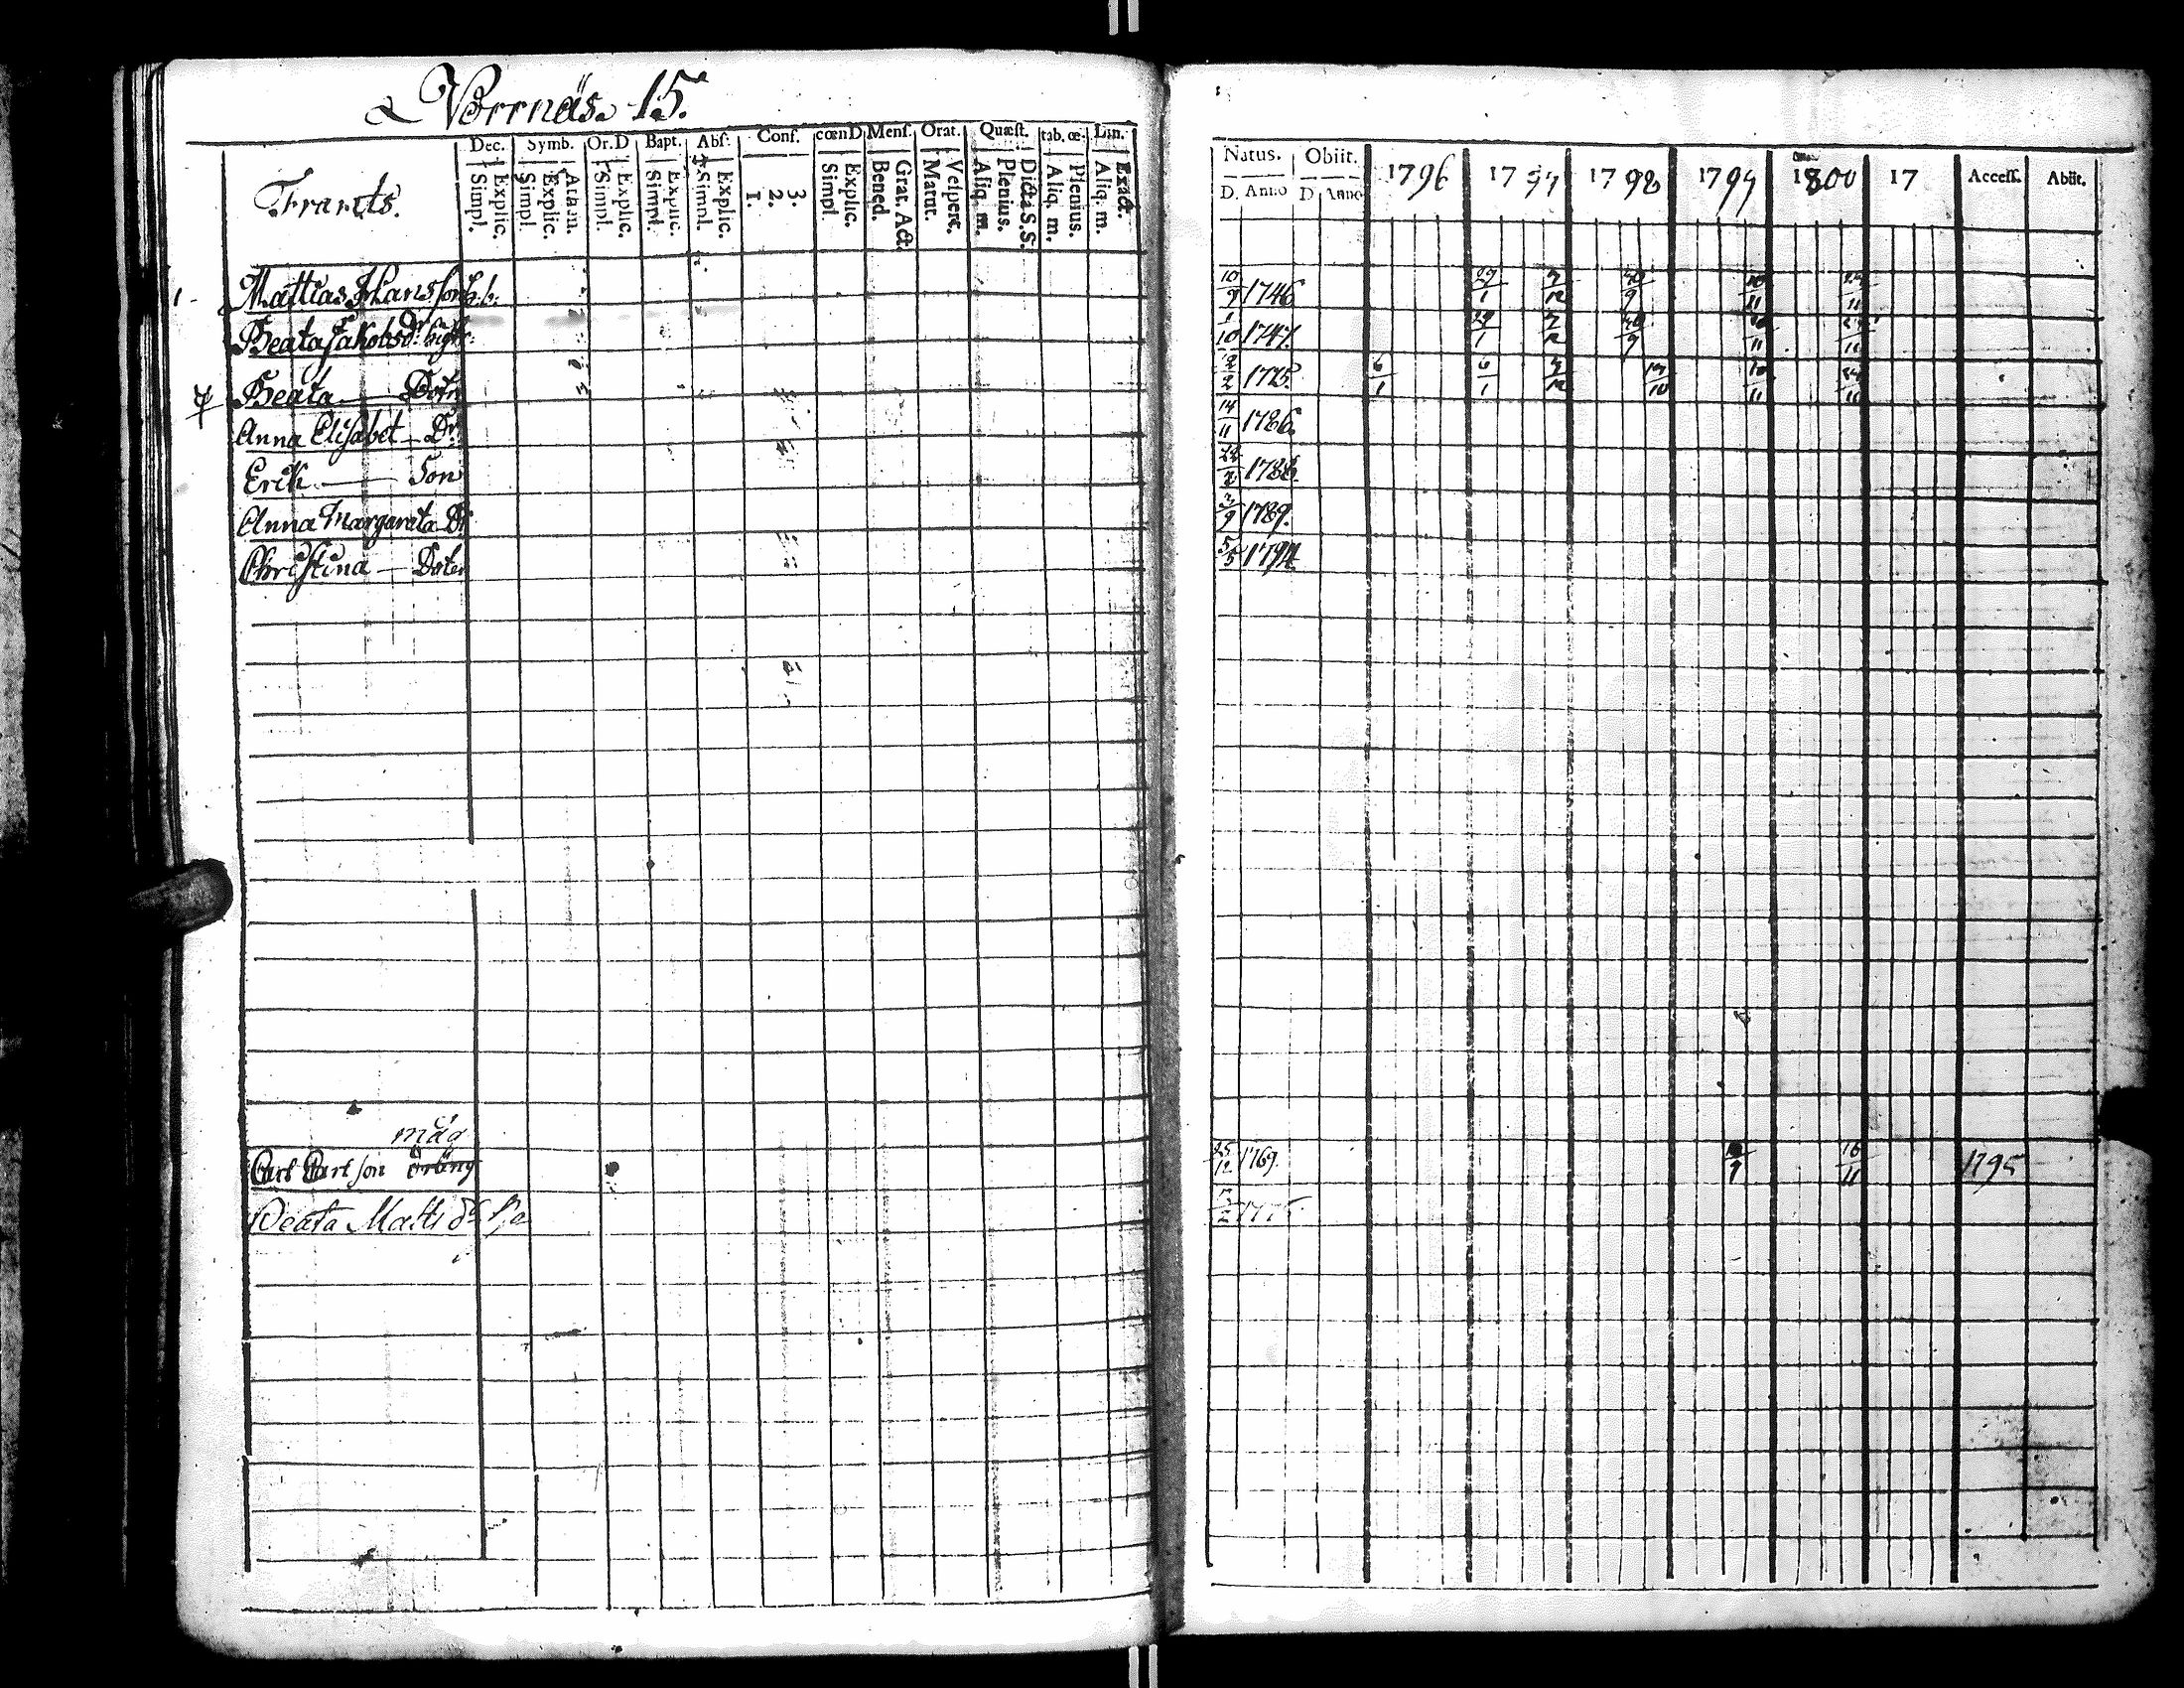 Norrnäs. 15.
Dec. Symb. Or.D Bapt. Abs. Conf. cœnD Mens. Orat. Quæst. tab. œ. Lin.
Simpl. Explic. Simpl. Explic. Atan. Simpl. Explic. Simpl. Explic. Simpl. Explic. 1. 2. 3. Simpl. Explic. Bened. Grat. Act. Matut. Vespert. Aliq. m. Plenius. Dicta S.S. Aliq. m. Plenius. Aliq. m. Exact.
Frants.
Natus. Obiit. 1796 1797 1798 1799 1800 17 Access. Abiit.
D. Anno D. Anno
1. Mattias Hansson b.b. 10/9 1746 29/1 7/12 30/9 10/11 24/11
Beata Jakobsdr hust: 1/10 1747. 29/1 7/12 30/9 10/11 24/11
Beata Doter 2/2 1775. 6/1 6/1 7/12 10/11 24/11
Anna Elisabet Dr 14/11 1786.
Erik Son 1788.
Anna Margareta Dr 3/9 1789.
Christina Doter 5/5 1794.
måg
Carl Carlson 25/12 1769. 16/11 1795
Beata Matts dr